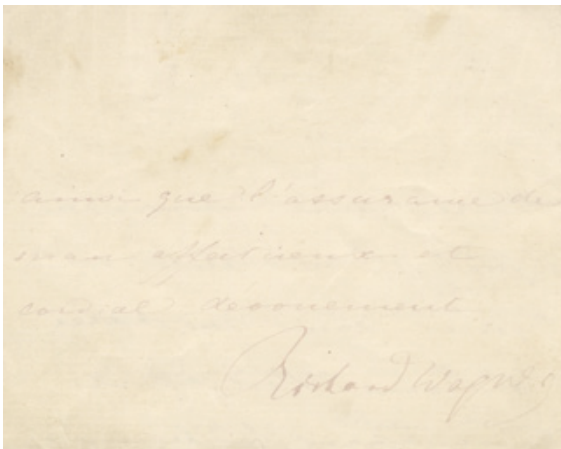 ainsi que l'assurance de
mon affectueux et
cordial dévouement
Richard Wagner